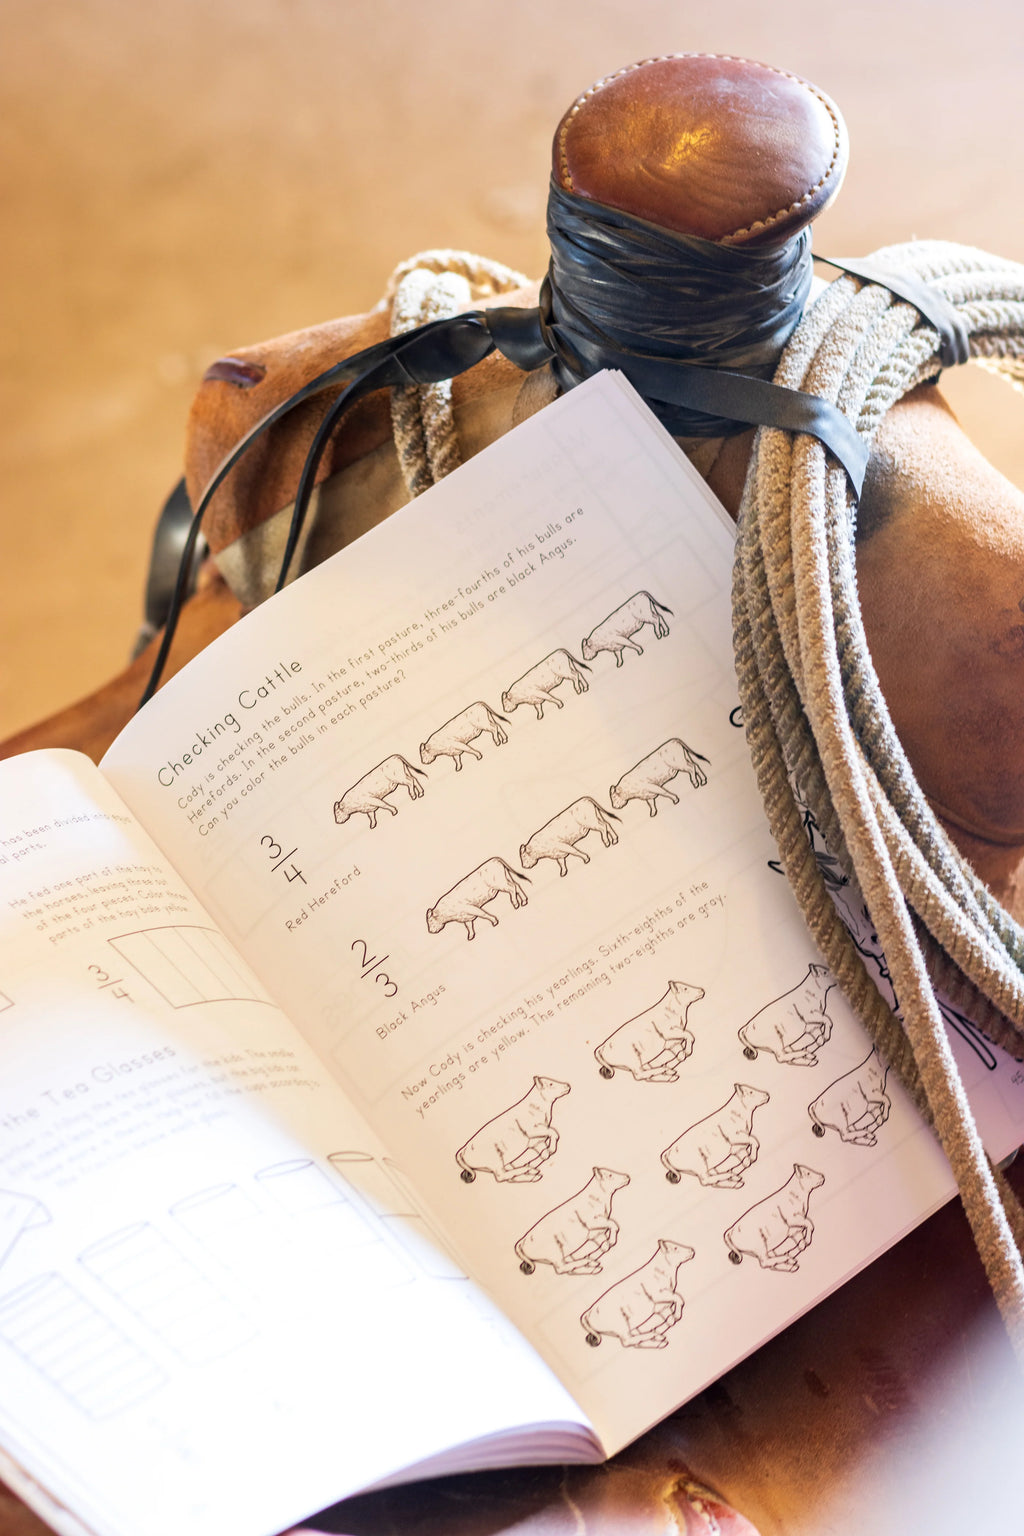 has been divided into
al parts.
He fed one part of the hay to
the horses, leaving three out
of the four pieces. Color three
parts of the hay bale yellow.
3
4
the Tea Glasses
Checking Cattle
Cody is checking the bulls. In the first pasture, three-fourths of his bulls are
Herefords. In the second pasture, two-thirds of his bulls are black Angus.
Can you color the bulls in each pasture?
3
4
Red Hereford
2
3
Black Angus
Now Cody is checking his yearlings. Sixth-eighths of the
yearlings are yellow. The remaining two-eighths are gray.
45